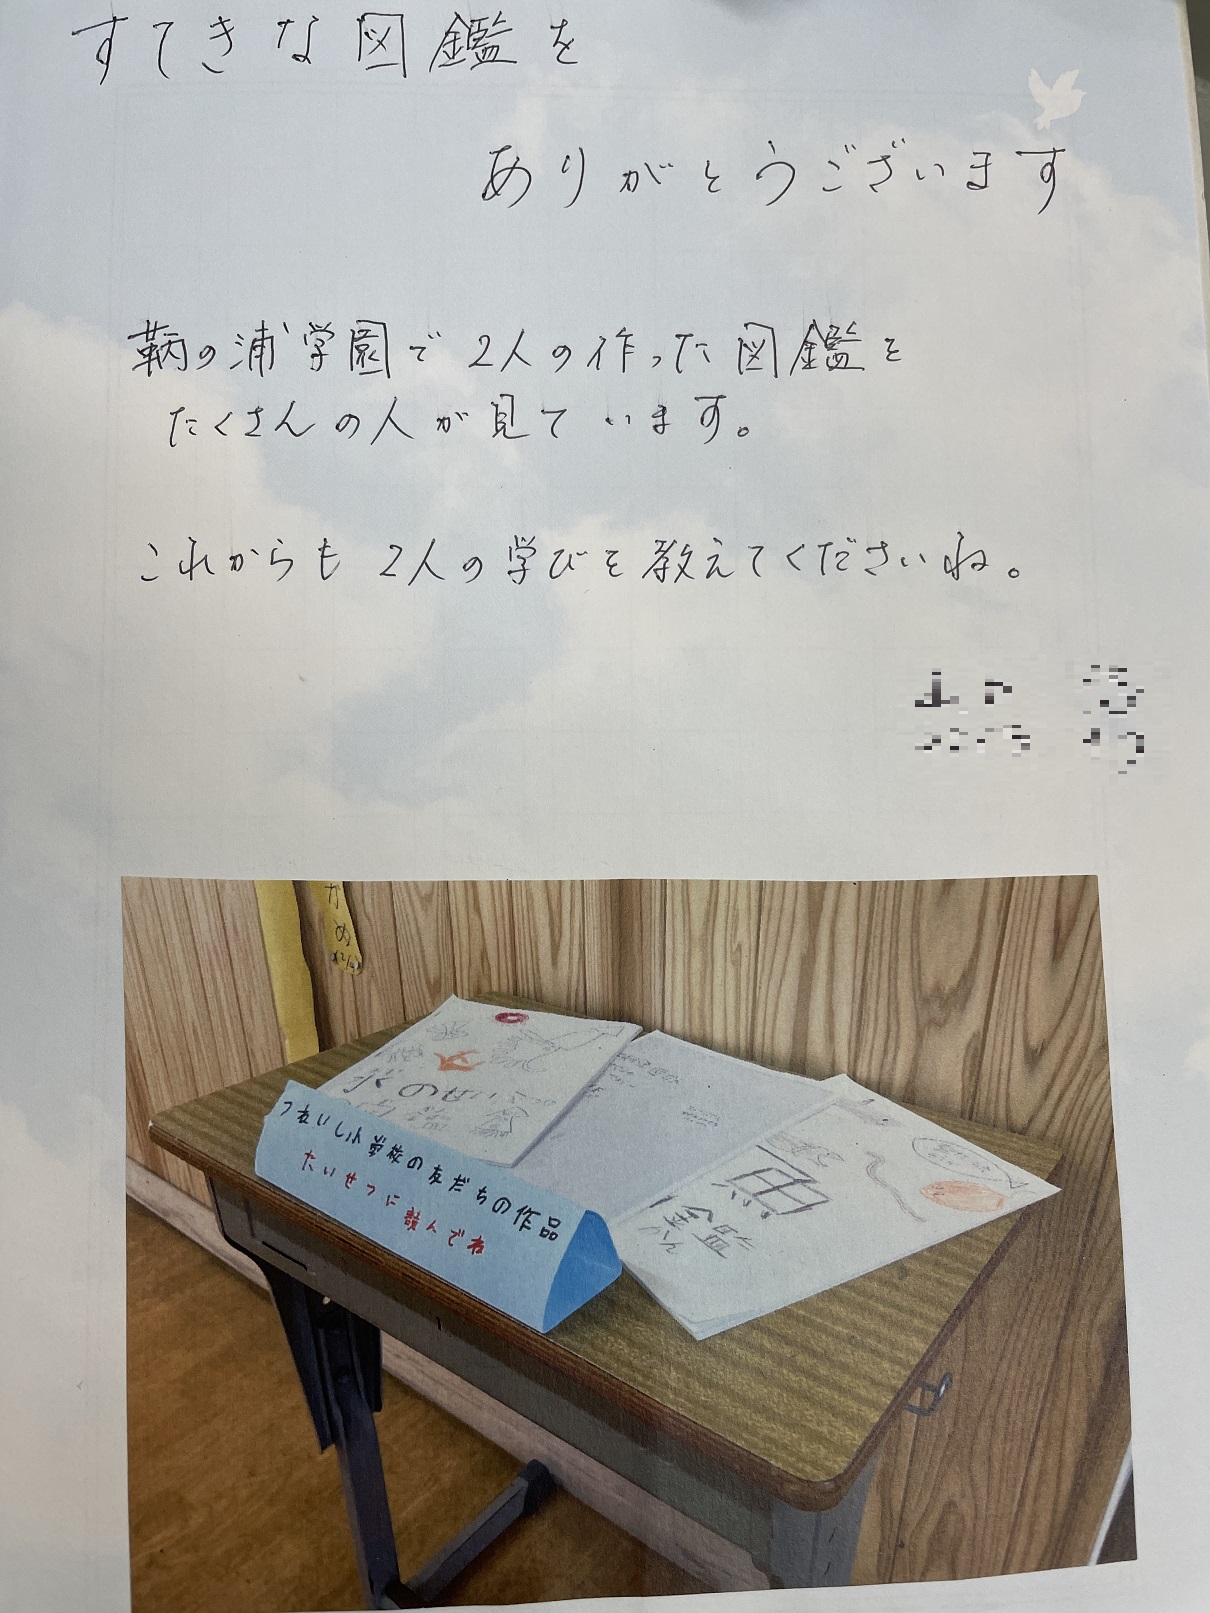 すてきな図鑑を
ありがとうございます
鞆の浦学園で2人の作った図鑑を
たくさんの人が見ています。
これからも2人の学びを教えてくださいね。
かめ
つねいし小学校の友だちの作品
たいせつに読んでね
魚
図鑑
かん